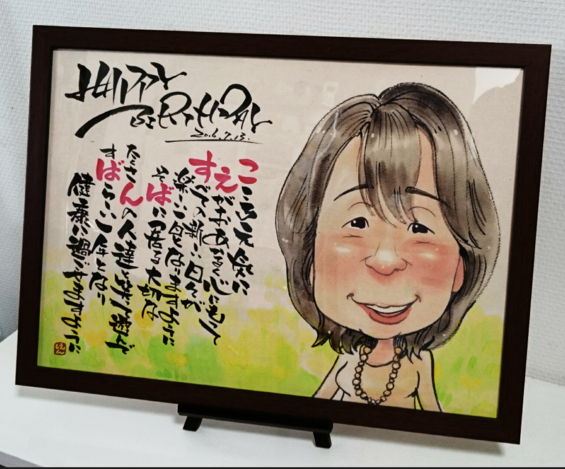 HAPPY
BIRTHDAY
2016.7.13.
こころ元気に
えがおあかるく心にもって
すべての新しい日々が
楽しい日となりますように
そばに居る大切な
たくさんの人達と
すばらしい一年となり
健康に過ごせますように